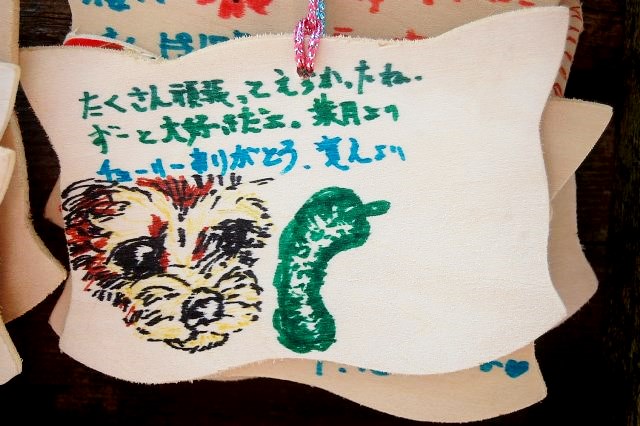 たくさん頑張ってえらかったね。
ずーと大好きだよ。葉月より
チューリーありがとう、寛人より